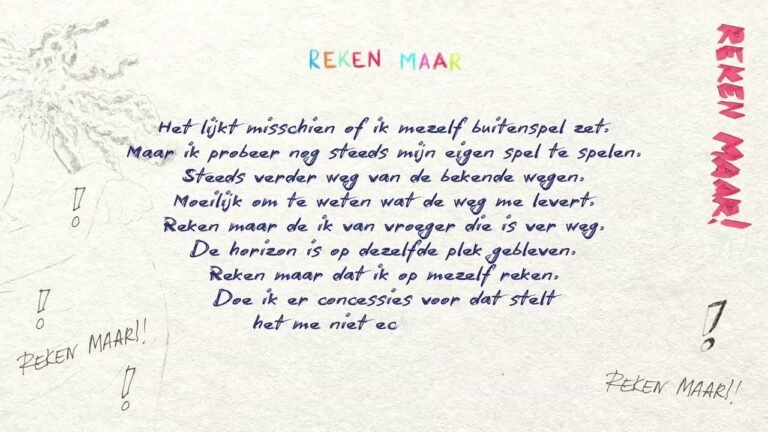 REKEN MAAR
REKEN MAAR!
Het lijkt misschien of ik mezelf buitenspel zet.
Maar ik probeer nog steeds mijn eigen spel te spelen.
Steeds verder weg van de bekende wegen.
Moeilijk om te weten wat de weg me levert.
Reken maar de ik van vroeger die is ver weg.
De horizon is op dezelfde plek gebleven.
Reken maar dat ik op mezelf reken.
Doe ik er concessies voor dat stelt
het me niet ec
!
!
!
REKEN MAAR!!
!
REKEN MAAR!!